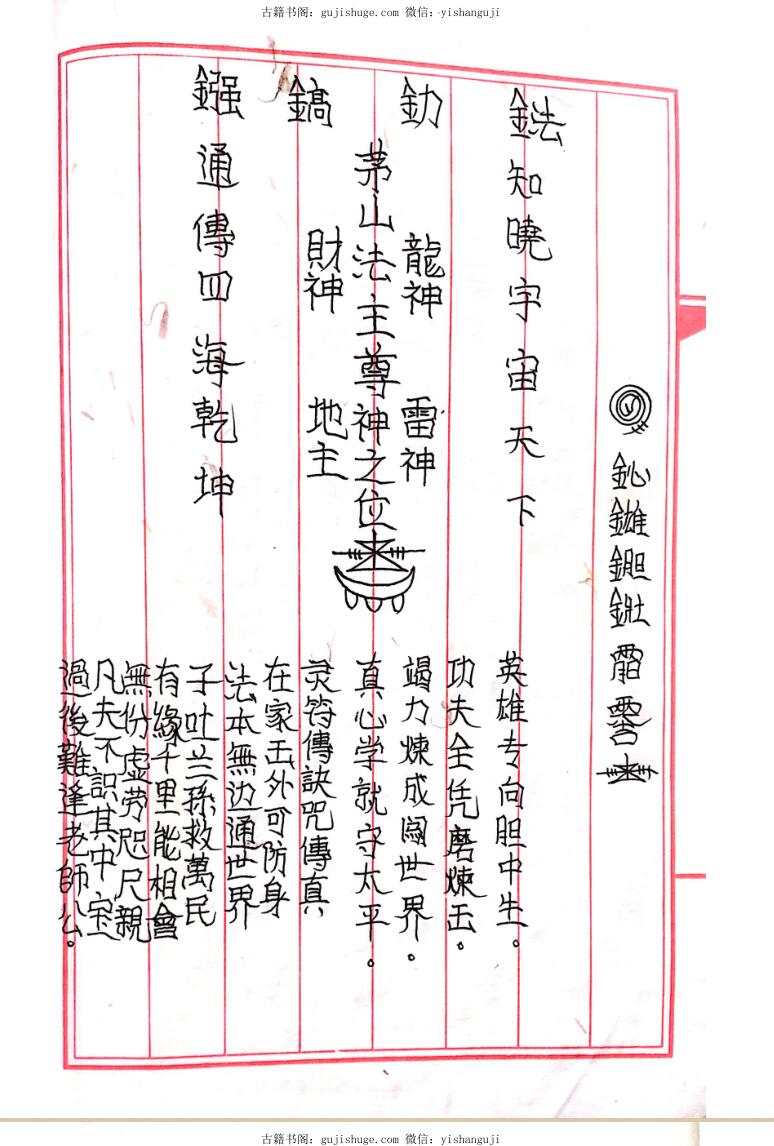 古籍书阁: gujishuge.com 微信: yishanguji
鈊
知曉宇宙天下
釛
龍神
雷神
茅山法主尊神之位
鎬
財神
地主
鏹通傳四海乾坤
英雄专向胆中生。
功夫全凭磨煉玉。
竭力煉成闖世界。
真心学就守太平。
灵符傳訣咒傳真
在家玉外可防身
法本無边通世界
子吐兰孫救萬民
有緣千里能相會
無份虚劳咫尺親
凡夫不識其中宝
過後難逢老師公。
古籍书阁: gujishuge.com 微信: yishanguji